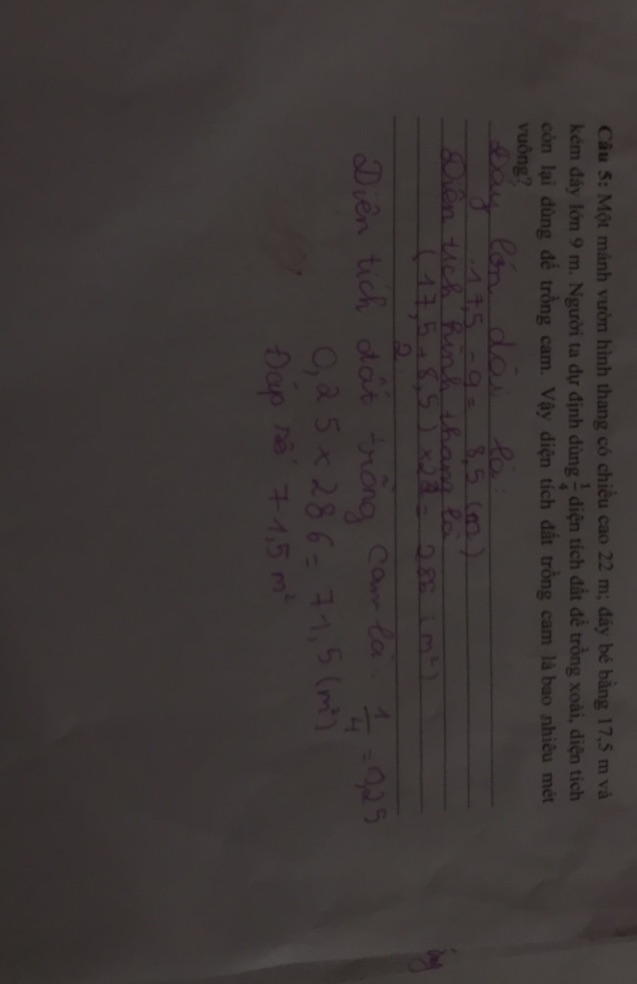 Câu 5: Một mảnh vườn hình thang có chiều cao 22 m; đáy bé bằng 17,5 m và
kém đáy lớn 9 m. Người ta dự định dùng 1/4 diện tích đất để trồng xoài, diện tích
còn lại dùng để trồng cam. Vậy diện tích đất trồng cam là bao nhiêu mét
vuông?
Đáy lớn dài là:
17,5 - 9 = 8,5 (m)
Diện tích hình thang là
(17,5 + 8,5) x 22 = 286 (m²)
2
Diên tích đất trồng cam là: 1/4 = 0,25
0,25 x 286 = 71,5 (m²)
Đáp số 71,5 m²